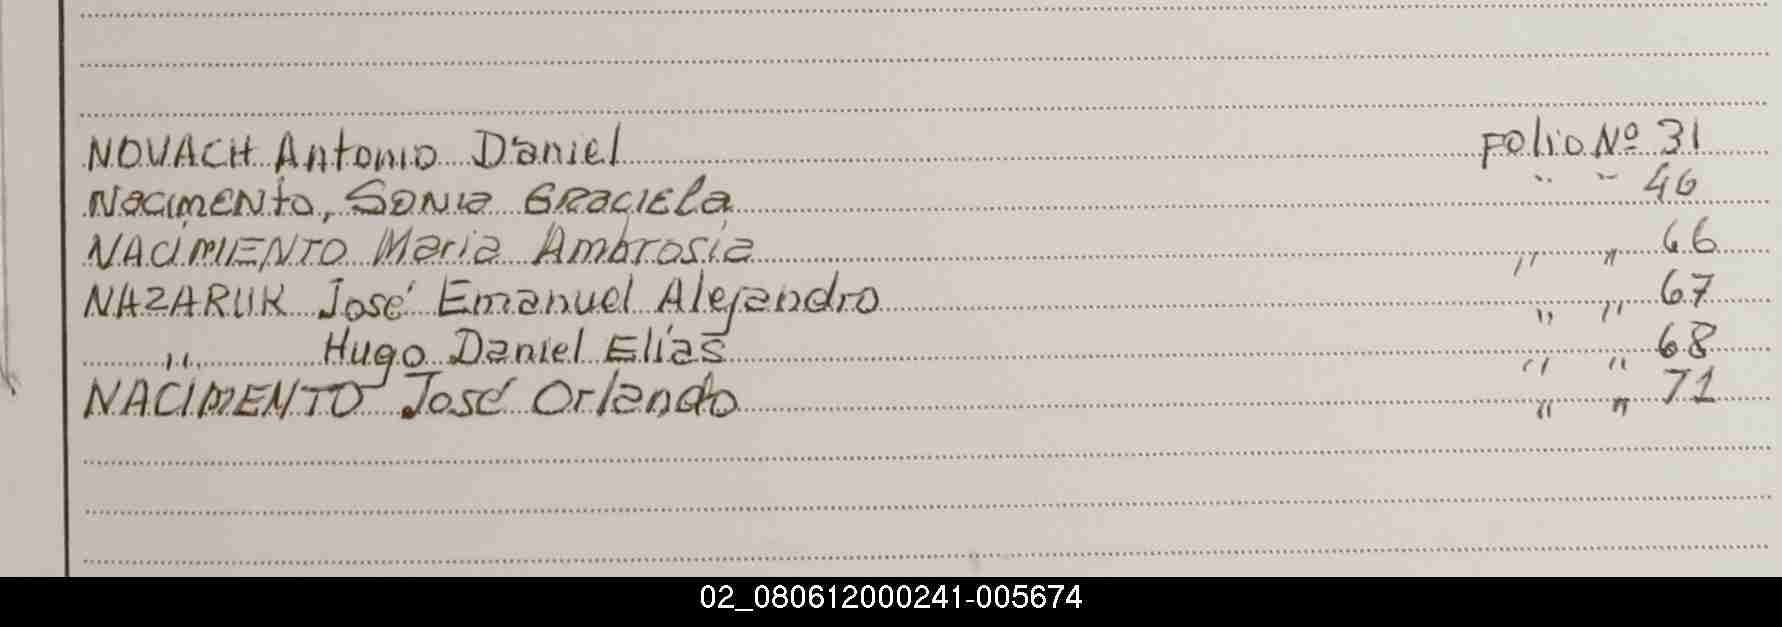 NOVACH Antonio Daniel Folio Nº 31
Nacimento, Sonia Graciela " " 46
NACIMIENTO Maria Ambrosia " " 66
NAZARUK José Emanuel Alejandro " " 67
" Hugo Daniel Elías " " 68
NACIMENTO José Orlando " " 71
02_080612000241-005674